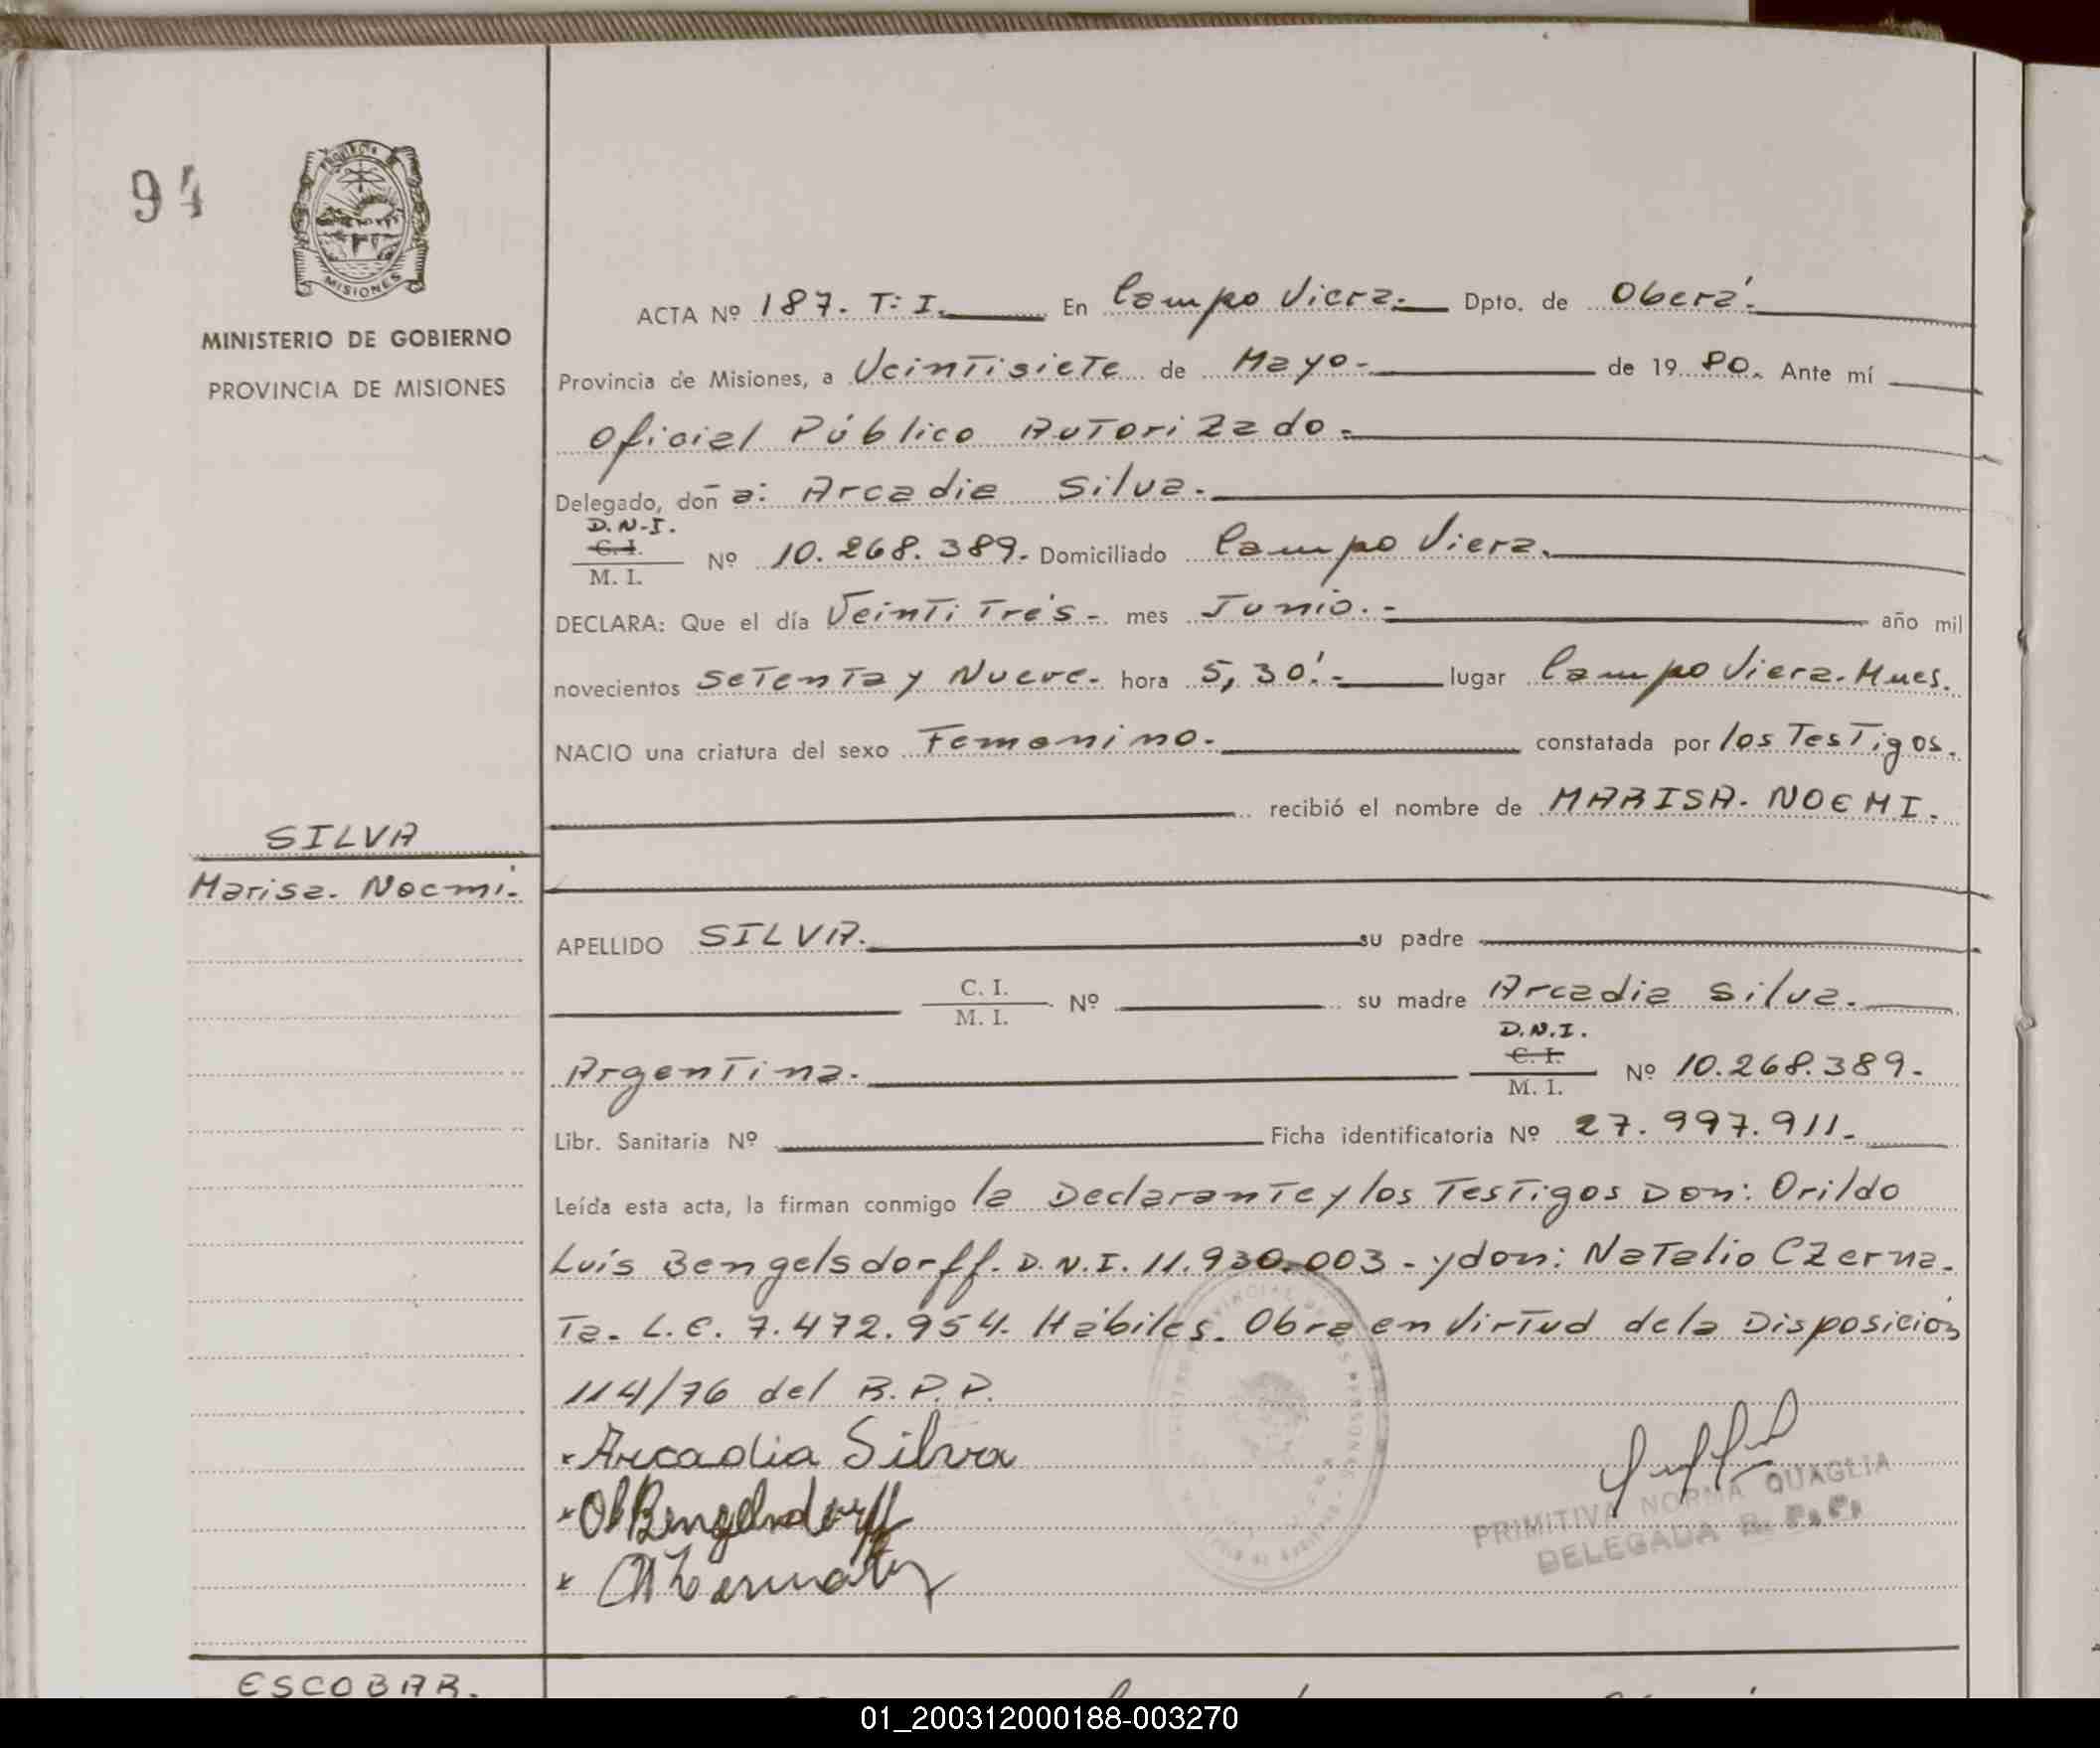 94
PROVINCIA DE
MISIONES
MINISTERIO DE GOBIERNO
PROVINCIA DE MISIONES
ACTA Nº 187. T: I. En Campo Viera.- Dpto. de Oberá.-
Provincia de Misiones, a Veintisiete de Mayo.- de 19 80. Ante mí
Oficial Público Autorizado.-
Delegado, doñ a: Arcadia Silva.-
D.N.I.
C. I.
M. I.
Nº 10.268.389.- Domiciliado Campo Viera.
DECLARA: Que el día Veinti Trés.- mes Junio.- año mil
novecientos Setenta y Nueve.- hora 5,30'.- lugar Campo Viera. Mnes.
NACIO una criatura del sexo Femenino.- constatada por los Testigos.
recibió el nombre de MARISA. NOEMI.
SILVA
Marisa. Noemí.
APELLIDO SILVA. su padre
C. I.
M. I.
Nº su madre Arcadia Silva.
Argentina.
D.N.I.
C. I.
M. I.
Nº 10.268.389.-
Libr. Sanitaria Nº Ficha identificatoria Nº 27.997.911.-
Leída esta acta, la firman conmigo la Declarante y los Testigos Don: Orildo
Luis Bengelsdorff. D.N.I. 11.930.003.- y don: Natalio Czerna-
Ta. L.E. 7.472.954. Hábiles. Obra en Virtud de la Disposición
114/76 del R.P.P.
Arcadia Silva
OLBengelsdorff
PRIMITIVA NORMA QUAGLIA
DELEGADA R. P. P.
ESCOBAR.
01_200312000188-003270